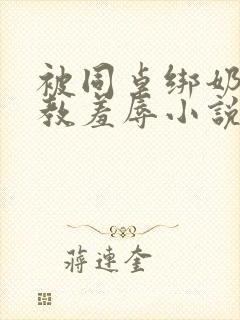 被同桌绑奶
教羞辱小説
蒋連奎